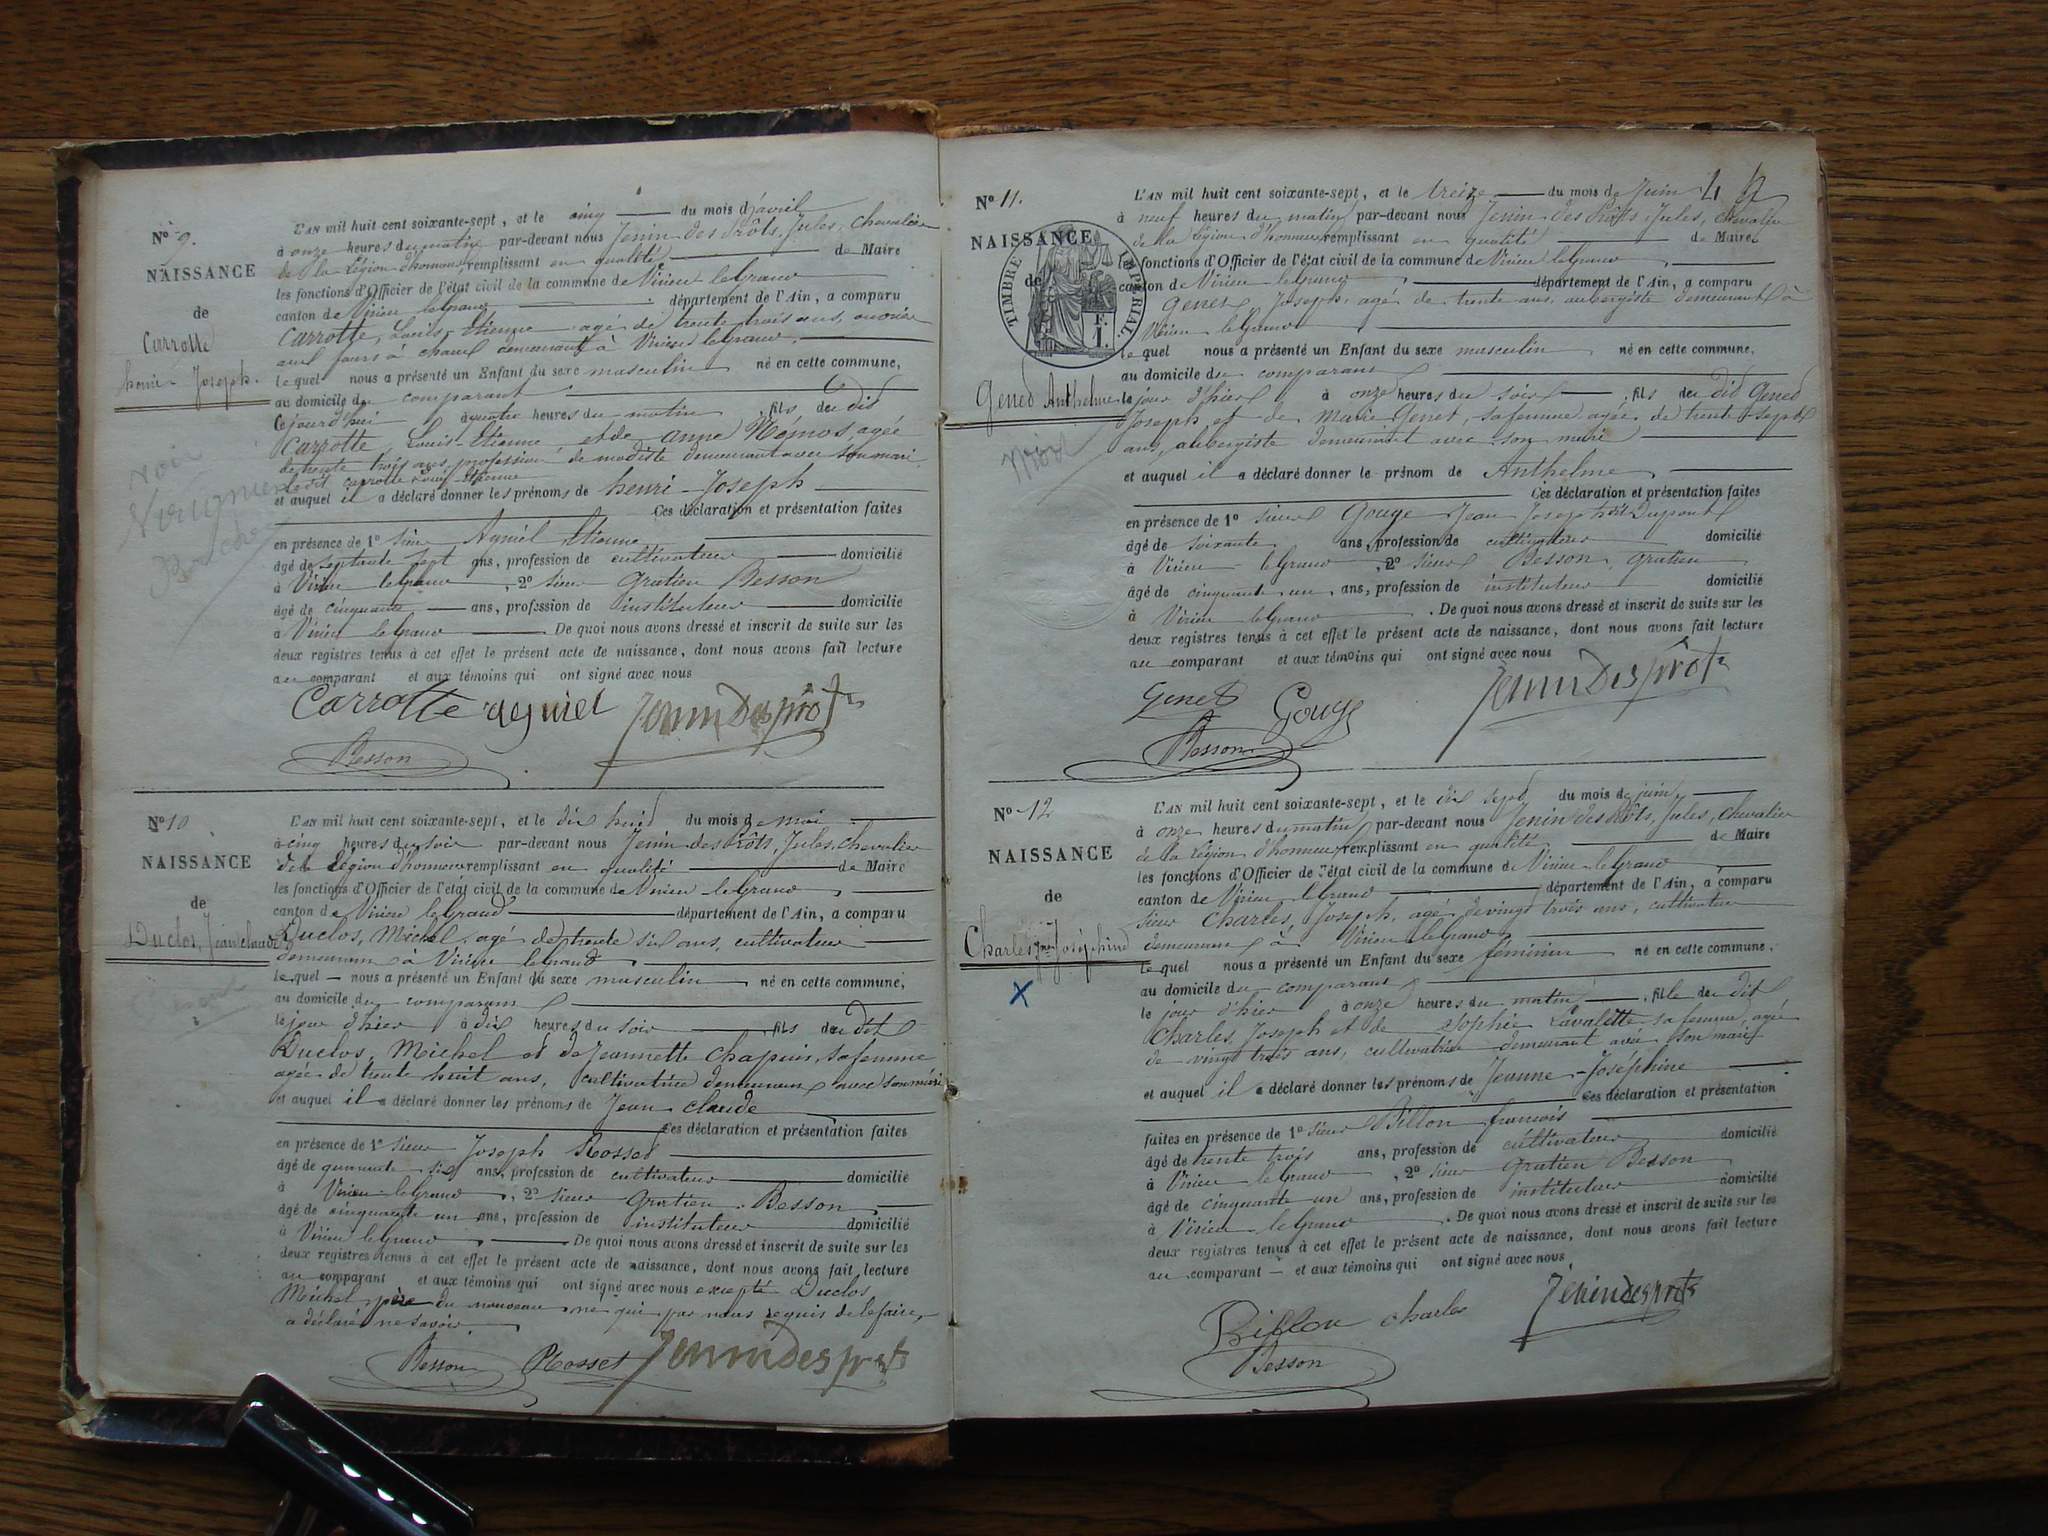 No 9.
NAISSANCE
de
Carrotte
henri Joseph.
voir
L'AN mil huit cent soixante-sept, et le cinq du mois d'avril
à onze heures du matin par-devant nous Jenin des Prôts, Jules, Chevalier
de la Légion d'honneur remplissant en qualité de Maire
les fonctions d'Officier de l'état civil de la commune de Virieu le Grand
canton de Virieu le Grand département de l'Ain, a comparu
Carrotte, Louis Etienne agé de trente trois ans, ouvrier
aux fours à chaux demeurant à Virieu le Grand
lequel nous a présenté un Enfant du sexe masculin né en cette commune,
au domicile du comparant
Cejourd'hui à quatre heures du matin fils du dit
Carrotte, Louis Etienne et de anne Némos, agée
de trente trois ans, profession de modiste demeurant avec son mari
le dit carrotte Louis Etienne
et auquel il a déclaré donner les prénoms de henri - Joseph
Ces déclaration et présentation faites
en présence de 1o sieur Ayniel Etienne
âgé de septante sept ans, profession de cultivateur domicilié
à Virieu le Grand, 2o sieur Gratien Besson
âgé de cinquante ans, profession de instituteur domicilié
à Virieu le Grand De quoi nous avons dressé et inscrit de suite sur les
deux registres tenus à cet effet le présent acte de naissance, dont nous avons fait lecture
au comparant et aux témoins qui ont signé avec nous
Carrotte Jenin Des prôts
Besson
No 10
NAISSANCE
de
Duclos, Jean claude
L'AN mil huit cent soixante-sept, et le dix huit du mois de mai
à cinq heures du soir par-devant nous Jenin des Prôts, Jules, Chevalier
de la Légion d'honneur remplissant en qualité de Maire
les fonctions d'Officier de l'état civil de la commune de Virieu le Grand
canton de Virieu le Grand département de l'Ain, a comparu
Duclos, Michel, agé de trente six ans, cultivateur
demeurant à Virieu le Grand
lequel nous a présenté un Enfant du sexe masculin né en cette commune,
au domicile du comparant
le jour d'hier à dix heures du soir fils du dit
Duclos, Michel et de Jeannette Chapuis, sa femme
agée de trente huit ans, cultivatrice demeurant avec son mari
et auquel il a déclaré donner les prénoms de Jean claude
Ces déclaration et présentation faites
en présence de 1o sieur Joseph Rosset
âgé de quarante six ans, profession de cultivateur domicilié
à Virieu le Grand, 2o sieur Gratien Besson
âgé de cinquante un ans, profession de instituteur domicilié
à Virieu le Grand De quoi nous avons dressé et inscrit de suite sur les
deux registres tenus à cet effet le présent acte de naissance, dont nous avons fait lecture
au comparant et aux témoins qui ont signé avec nous excepté Duclos
Michel père du nouveau né qui par nous requis de le faire,
a déclaré ne savoir
Besson Rosset Jenin Des prôts
No 11.
NAISSANCE
de
TIMBRE IMPERIAL
1 F.
Genet Anthelme
mort
L'AN mil huit cent soixante-sept, et le treize du mois de Juin
à neuf heures du matin par-devant nous Jenin des Prôts, Jules, chevalier
de la Légion d'honneur remplissant en qualité de Maire
fonctions d'Officier de l'état civil de la commune de Virieu le Grand
canton de Virieu le Grand département de l'Ain, a comparu
Genet, Joseph, agé de trente ans, aubergiste demeurant à
Virieu le Grand
lequel nous a présenté un Enfant du sexe masculin né en cette commune,
au domicile du comparant
le jour d'hier à onze heures du soir fils du dit Genet
Joseph et de Marie Genet, sa femme agée de trente sept
ans, aubergiste demeurant avec son mari
et auquel il a déclaré donner le prénom de Anthelme
Ces déclaration et présentation faites
en présence de 1o sieur Gouge Jean Joseph dit Dupont
âgé de soixante ans, profession de cultivateur domicilié
à Virieu le Grand, 2o sieur Besson, Gratien
âgé de cinquante un ans, profession de instituteur domicilié
à Virieu le Grand. De quoi nous avons dressé et inscrit de suite sur les
deux registres tenus à cet effet le présent acte de naissance, dont nous avons fait lecture
au comparant et aux témoins qui ont signé avec nous
Genet Gouge Jenin Des prôts
Besson
No 12
NAISSANCE
de
Charles Jne Joséphine
L'AN mil huit cent soixante-sept, et le dix sept du mois de juin
à onze heures du matin par-devant nous Jenin des Prôts, Jules, chevalier
de la Légion d'honneur, remplissant en qualité de Maire
les fonctions d'Officier de l'état civil de la commune de Virieu le Grand
canton de Virieu le Grand département de l'Ain, a comparu
sieur Charles, Joseph, agé de vingt trois ans, cultivateur
demeurant à Virieu le Grand
lequel nous a présenté un Enfant du sexe féminin né en cette commune.
au domicile du comparant
le jour d'hier à onze heures du matin, fille du dit
Charles, Joseph et de Sophie Lavalette sa femme, agée
de vingt trois ans, cultivatrice demeurant avec son mari
et auquel il a déclaré donner les prénoms de Jeanne-Joséphine
Ces déclaration et présentation
faites en présence de 1o sieur Billon françois
âgé de trente trois ans, profession de cultivateur domicilié
à Virieu le Grand, 2o sieur Gratien Besson
âgé de cinquante un ans, profession de instituteur domicilié
à Virieu le Grand. De quoi nous avons dressé et inscrit de suite sur les
deux registres tenus à cet effet le présent acte de naissance, dont nous avons fait lecture
au comparant et aux témoins qui ont signé avec nous
Billon charles Jenin des prôts
Besson